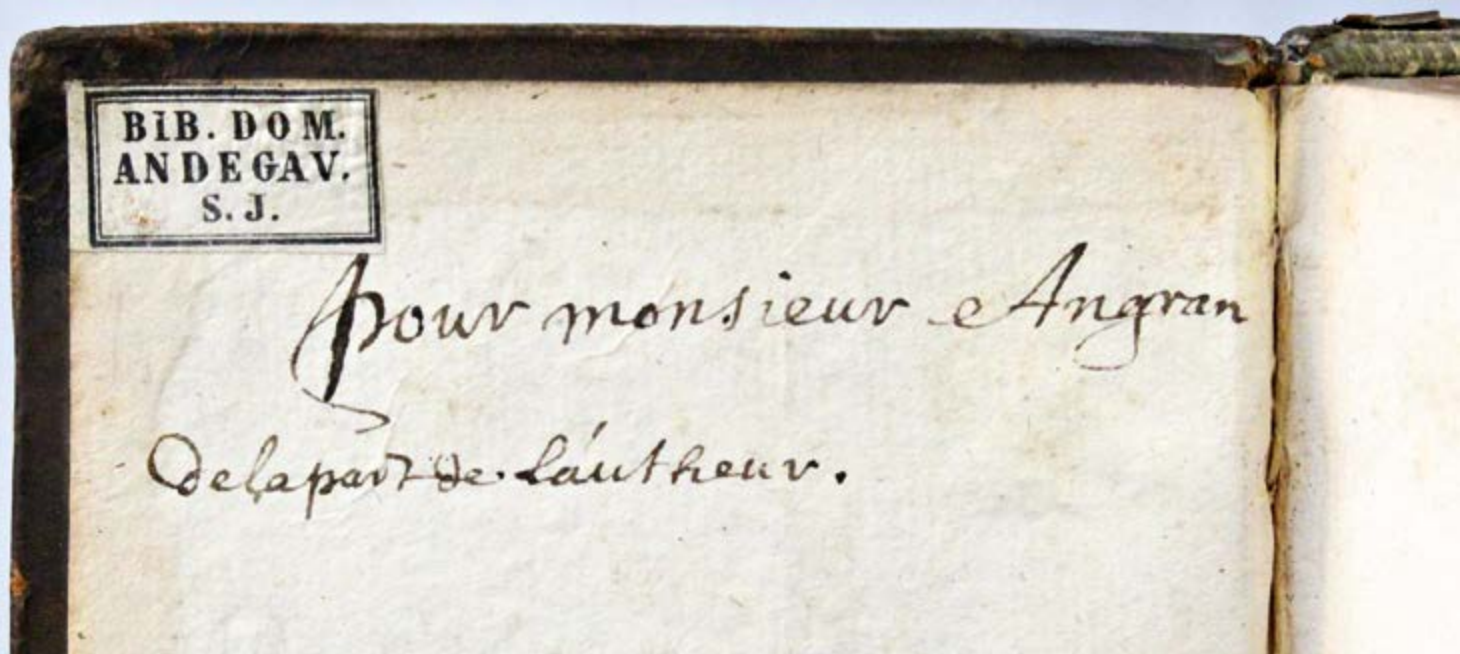 BIB. DOM.
ANDEGAV.
S. J.
Pour monsieur Angran
de la part de l'autheur.